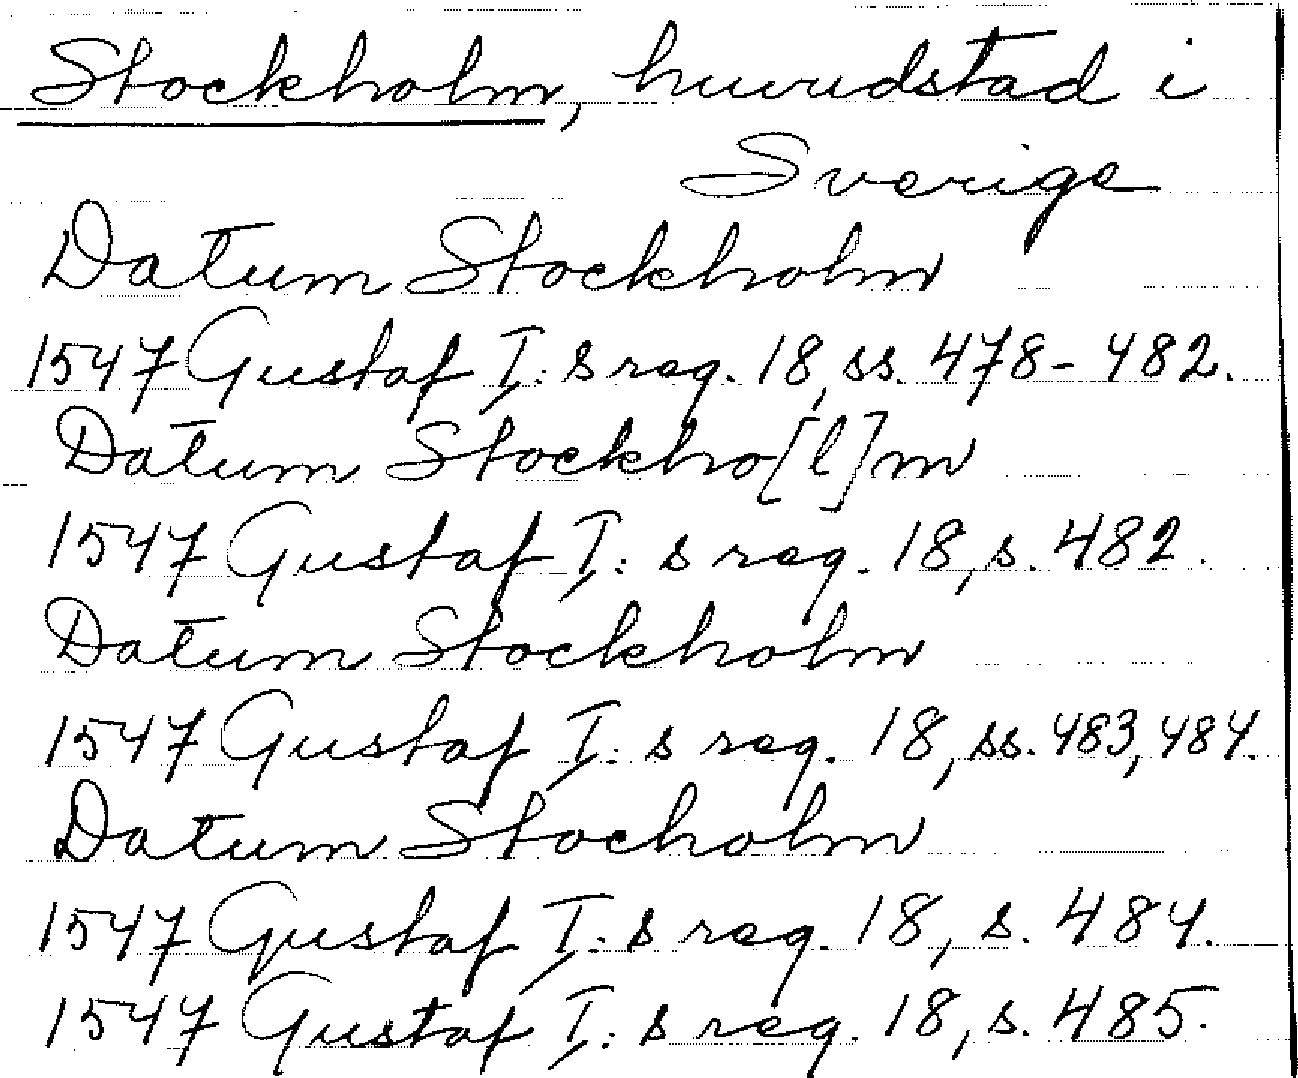 Stockholm, huvudstad i
Sverige
Datum Stockholm
1547 Gustaf I: s reg. 18, ss. 478-482.
Datum Stockho[l]m
1547 Gustaf I: s reg. 18, s. 482.
Datum Stockholm
1547 Gustaf I: s reg. 18, ss. 483, 484.
Datum Stocholm
1547 Gustaf I: s reg. 18, s. 484.
1547 Gustaf I: s reg. 18, s. 485.